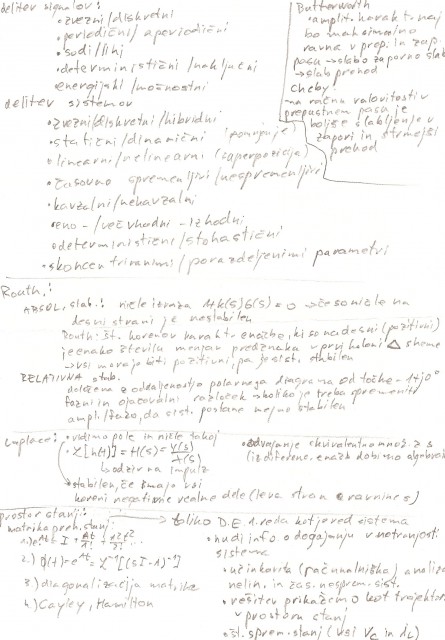 delitev signalov:
• zvezni/diskretni
• periodični/aperiodični
• sodi/lihi
• deterministični/naključni
energijski/močnostni
delitev sistemov
• zvezni/diskretni/hibridni
• statični/dinamični (pomnjenje)
• linearni/nelinearni (superpozicija)
• časovno spremenljivi/nespremenljivi
• kavzalni/nekavzalni
• eno-/večvhodni-izhodni
• deterministični/stohastični
• skoncentriranimi/porazdeljenimi parametri
Butterworth
• amplit. karakt. naj
bo maksimalno
ravna v prep. in zap.
pasu → slabo zaporno slab
→ slab prehod
Cheby
- na račun valovitosti v
prepustnem pasu je
boljše slabljenje v
zapori in strmejši
prehod
Routh:
ABSOL. stab.: ničle izraza 1+k(s)G(s)=0 → če so ničle na
desni strani je nestabilen
Routh: št. korenov karakt. enačbe, ki so na desni (pozitivni)
je enako številu menjav predznaka v prvi koloni sheme
→ vsi morajo biti pozitivni, pa je sist. stabilen
RELATIVNA stab.
določena z oddaljenostjo polarnega diagrama od točke -1+j0
fazni in ojačevalni razloček → koliko je treba spremeniti
ampl./fazo, da sist. postane mejno stabilen
Laplace:
• vidimo pole in ničle takoj
• L[h(t)] = H(s) = Y(s)/X(s)
↳ odziv na impulz
• stabilen, če imajo vsi
koreni negativne realne dele (leva stran ravnine s)
• odvajanje ekvivalentno množ. z s
(iz diferenc. enačb dobimo algebrske
prostor stanj:
matrika preh. stanj:
1.) e^At = I + At/1! + A²t²/2! ...
2.) Φ(t) = e^At = L⁻¹[(sI-A)⁻¹]
3.) diagonalizacija matrike
4.) Cayley, Hamilton
→ toliko D.E. 1. reda kot je red sistema
• nudi info. o dogajanju v notranjosti
sistema
• učinkovita (računalniška) analiza
nelin. in čas. nesprem. sist.
• rešitev prikažemo kot trajektor.
v prostoru stanj
• št. sprem. stanj (vsi Vc in iL)